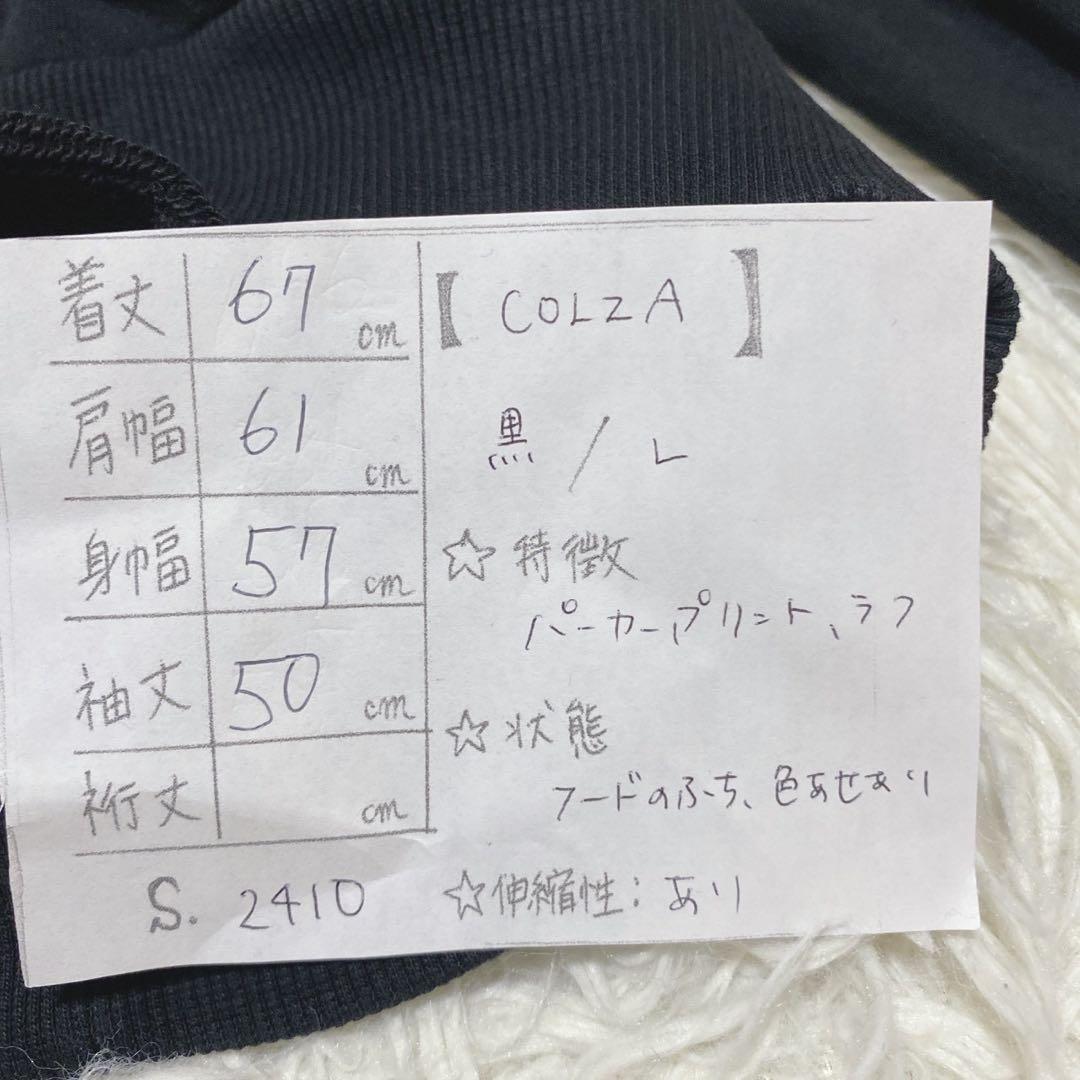 着丈 67 cm
肩幅 61 cm
身幅 57 cm
袖丈 50 cm
裄丈 cm
S. 2410
【 COLZA 】
黒 / L
☆特徴
パーカー、プリント、ラフ
☆状態
フードのふち、色あせあり
☆伸縮性:あり